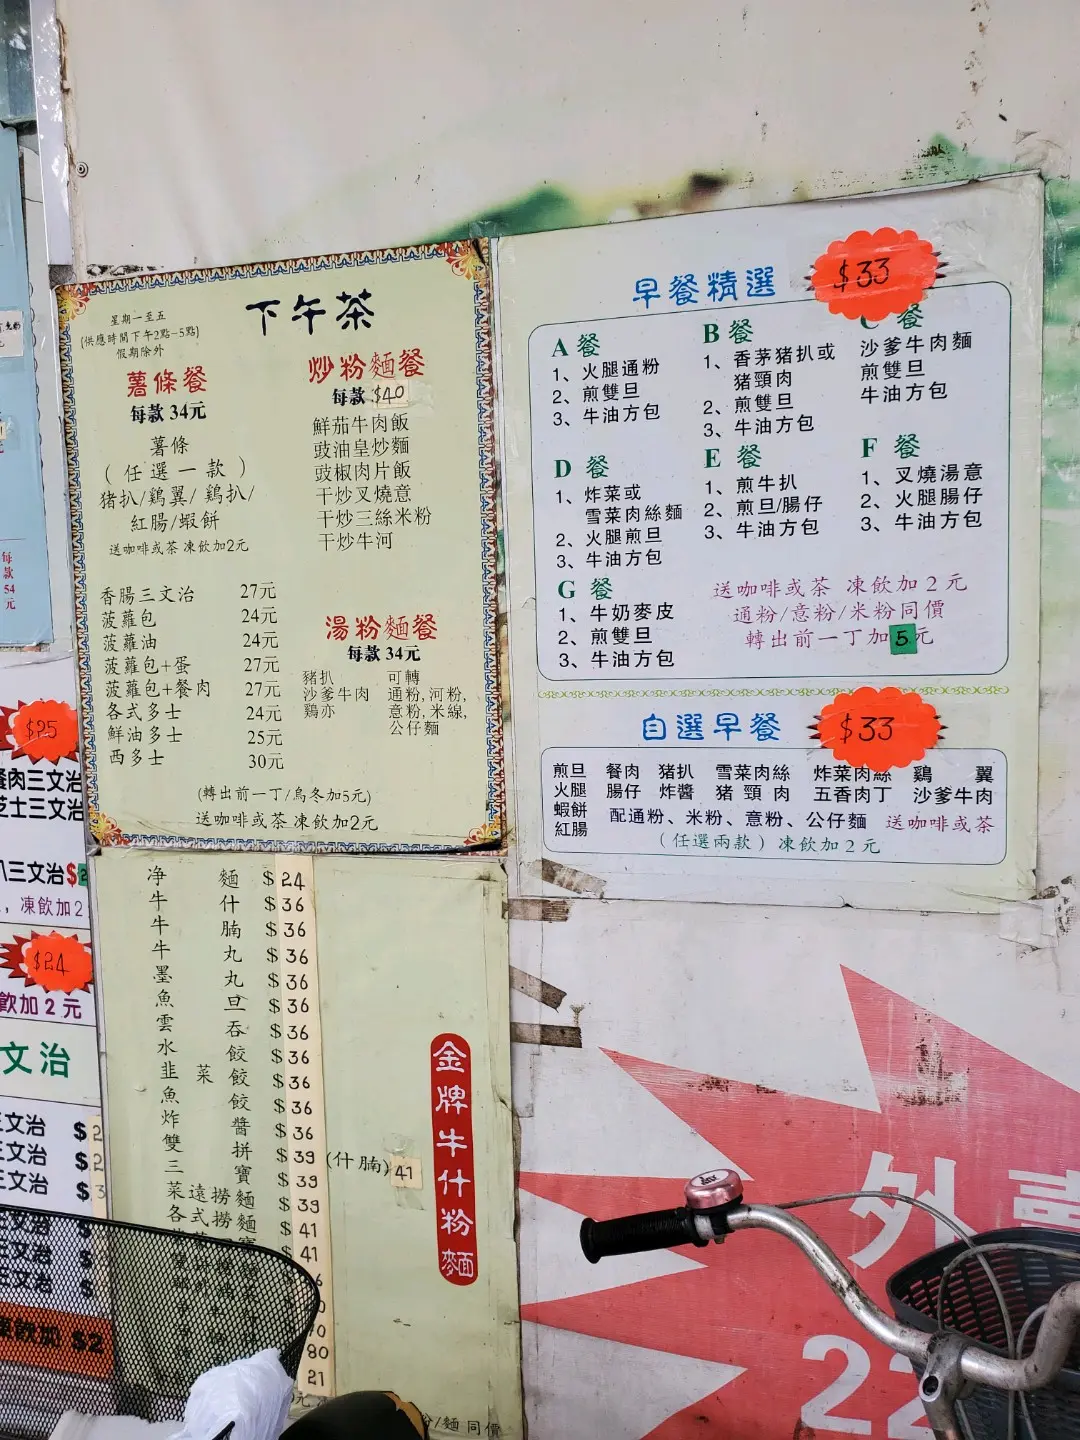 下午茶
星期一至五
(供應時間下午2點~5點)
假期除外
薯條餐
每款 34元
薯條
(任選一款)
猪扒/鷄翼/鷄扒/
紅腸/蝦餅
送咖啡或茶 凍飲加2元
炒粉麵餐
每款 $40
鮮茄牛肉飯
豉油皇炒麵
豉椒肉片飯
干炒叉燒意
干炒三絲米粉
干炒牛河
香腸三文治 27元
菠蘿包 24元
菠蘿油 24元
菠蘿包+蛋 27元
菠蘿包+餐肉 27元
各式多士 24元
鮮油多士 25元
西多士 30元
湯粉麵餐
每款 34元
猪扒
沙爹牛肉
鷄亦
可轉
通粉,河粉,
意粉,米線,
公仔麵
(轉出前一丁/烏冬加5元)
送咖啡或茶 凍飲加2元
早餐精選
$33
A 餐
1、火腿通粉
2、煎雙旦
3、牛油方包
B 餐
1、香茅猪扒或
猪頸肉
2、煎雙旦
3、牛油方包
C 餐
沙爹牛肉麵
煎雙旦
牛油方包
D 餐
1、炸菜或
雪菜肉絲麵
2、火腿煎旦
3、牛油方包
E 餐
1、煎牛扒
2、煎旦/腸仔
3、牛油方包
F 餐
1、叉燒湯意
2、火腿腸仔
3、牛油方包
G 餐
1、牛奶麥皮
2、煎雙旦
3、牛油方包
送咖啡或茶 凍飲加2元
通粉/意粉/米粉同價
轉出前一丁加5元
自選早餐
$33
煎旦 餐肉 猪扒 雪菜肉絲 炸菜肉絲 鷄翼
火腿 腸仔 炸醬 猪頸肉 五香肉丁 沙爹牛肉
蝦餅
紅腸
配通粉、米粉、意粉、公仔麵 送咖啡或茶
(任選兩款) 凍飲加2元
净麵 $24
牛什 $36
牛腩 $36
牛丸 $36
墨丸 $36
魚旦 $36
雲吞 $36
水餃 $36
韭菜餃 $36
魚餃 $36
炸醬 $36
雙拼 $39 (什腩) 41
三寶 $39
菜遠撈麵 $39
各式撈麵 $41
$41
80
21
/麵同價
金牌牛什粉麵
$25
餐肉三文治
芝士三文治
三文治$
,凍飲加2
$24
飲加2元
文治
三文治 $2
三文治 $2
三文治 $3
三文治 $
三文治 $
三文治 $
凍飲加 $2
每款54元
外賣
22